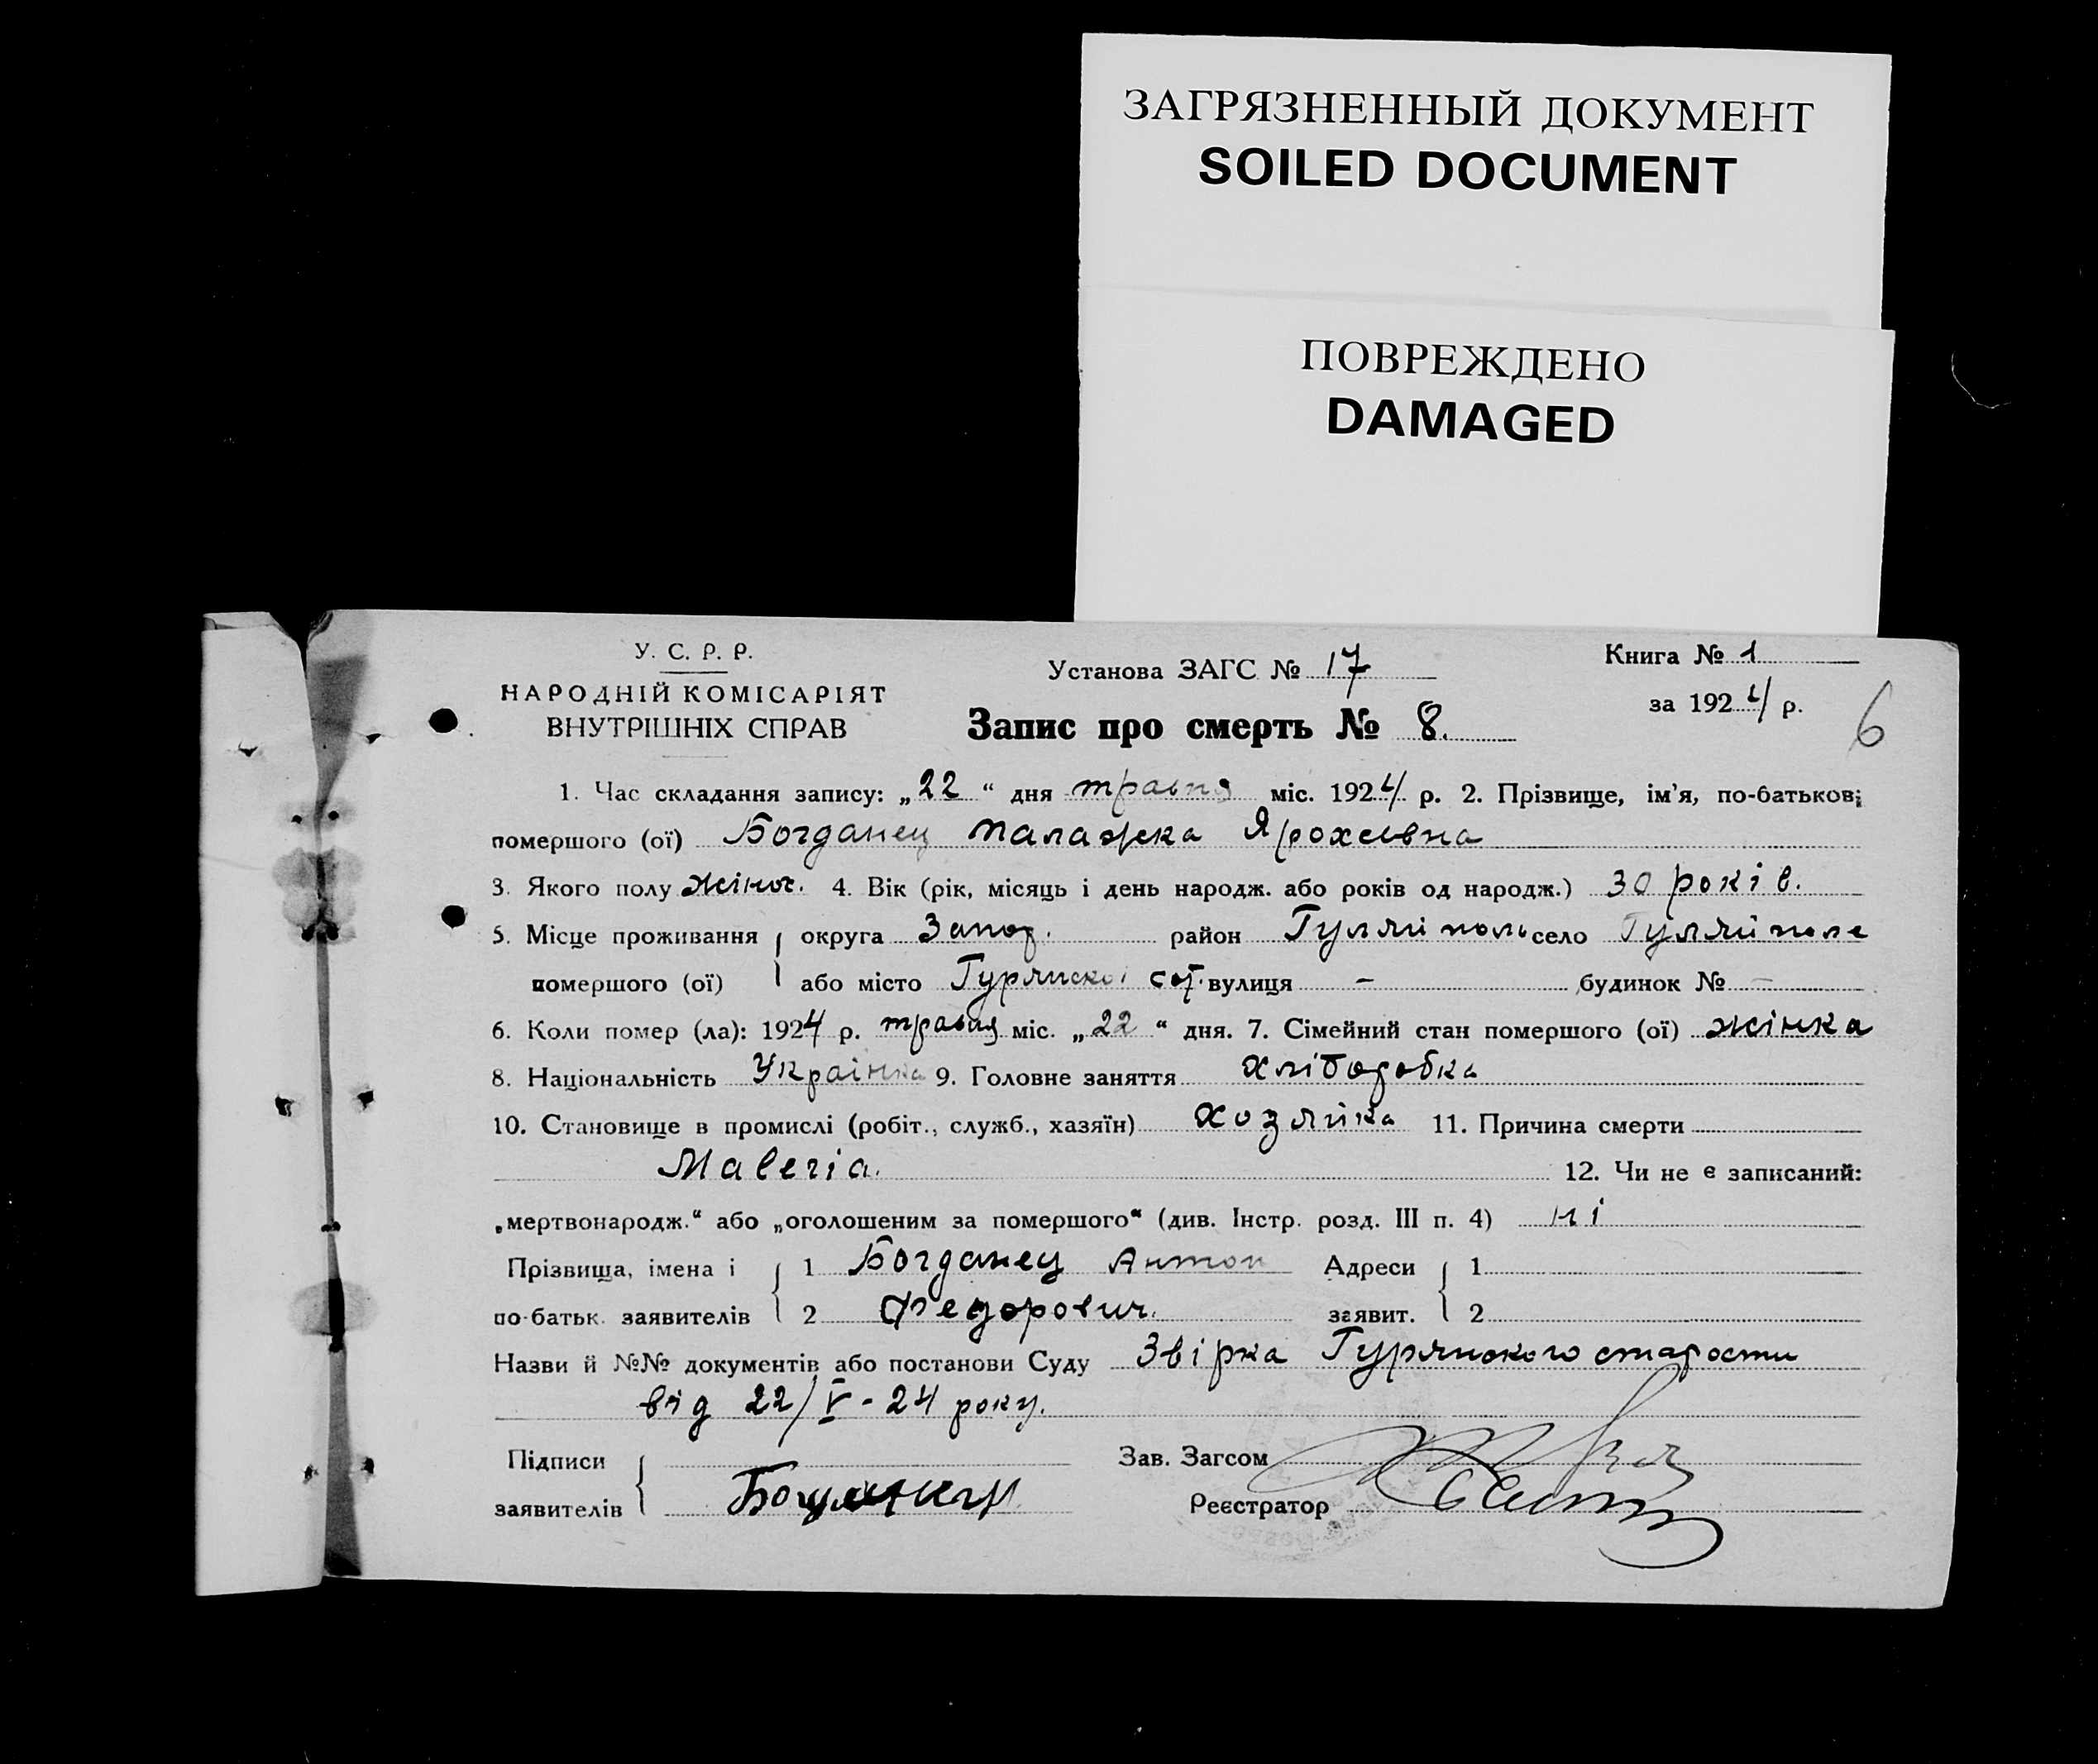 ЗАГРЯЗНЕННЫЙ ДОКУМЕНТ
SOILED DOCUMENT
ПОВРЕЖДЕНО
DAMAGED
У. С. Р. Р.
НАРОДНІЙ КОМІСАРІЯТ
ВНУТРІШНІХ СПРАВ
Установа ЗАГС № 17
Запис про смерть № 8.
Книга № 1
за 1924 р.
6
1. Час складання запису: „22“ дня травня міс. 1924 р. 2. Прізвище, ім'я, по-батькові
помершого (ої) Богданец Палажка Ярохеівна
3. Якого полу жіноч. 4. Вік (рік, місяць і день народж. або років од народж.) 30 років.
5. Місце проживання округа Запор. район Гуляй поль село Гуляй поле
помершого (ої) або місто Гурянскої сот. вулиця – будинок № –
6. Коли помер (ла): 1924 р. травня міс. „22“ дня. 7. Сімейний стан помершого (ої) жінка
8. Національність Українка 9. Головне заняття хліборобка
10. Становище в промислі (робіт., служб., хазяїн) хозяйка 11. Причина смерти
Maleria. 12. Чи не є записаний:
„мертвонародж.“ або „оголошеним за помершого“ (див. Інстр. розд. III п. 4) ні
Прізвища, імена і 1 Богданец Антон Адреси 1
по-батьк. заявителів 2 Федорович. заявит. 2
Назви й №№ документів або постанови Суду Звірка Гурянского старости
від 22/V - 24 року.
Підписи
заявителів
Зав. Загсом
Реєстратор